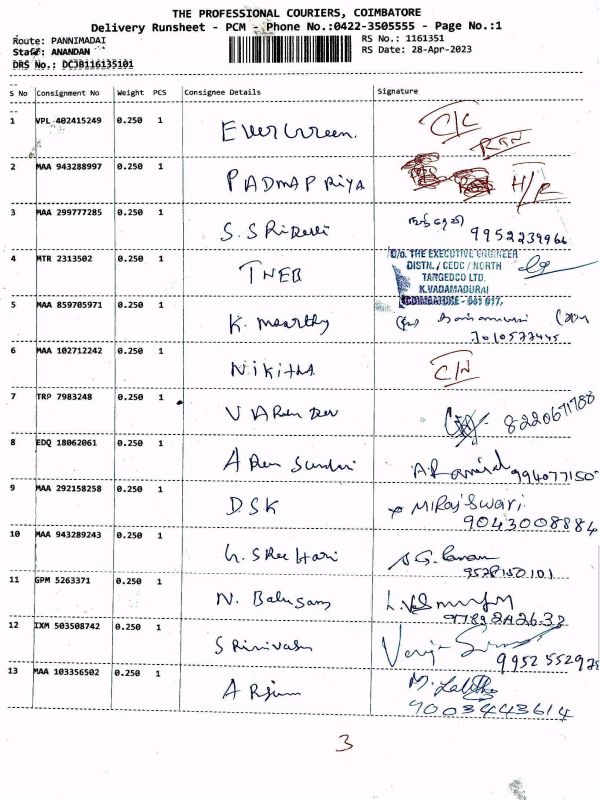 THE PROFESSIONAL COURIERS, COIMBATORE
Delivery Runsheet - PCM - Phone No.:0422-3505555 - Page No.:1
Route: PANNIMADAI RS No.: 1161351
Staff: ANANDAN RS Date: 28-Apr-2023
DRS No.: DCJB116135101
S No Consignment No Weight PCS Consignee Details Signature
1 VPL 402415249 0.250 1 Evergreen.
2 MAA 943288997 0.250 1 PADMAPRIYA
3 MAA 299777285 0.250 1 S. SRIDEVI
9952239966
4 MTR 2313502 0.250 1 TNEB
O/o. THE EXECUTIVE ENGINEER
DISTN. / CEDC / NORTH
TANGEDCO LTD.
K.VADAMADURAI
COIMBATORE - 641 017.
5 MAA 859705971 0.250 1 K. Moorthy
6 MAA 102712242 0.250 1 Nikitha
7 TRP 7983248 0.250 1
8220671788
8 EDQ 18062061 0.250 1
994077150
9 MAA 292158258 0.250 1 DSK
9043008884
10 MAA 943289243 0.250 1 Sree Hari
11 GPM 5263371 0.250 1 N.
12 IXM 503508742 0.250 1 Srinivasan
13 MAA 103356502 0.250 1 Arjun
9003443614
3